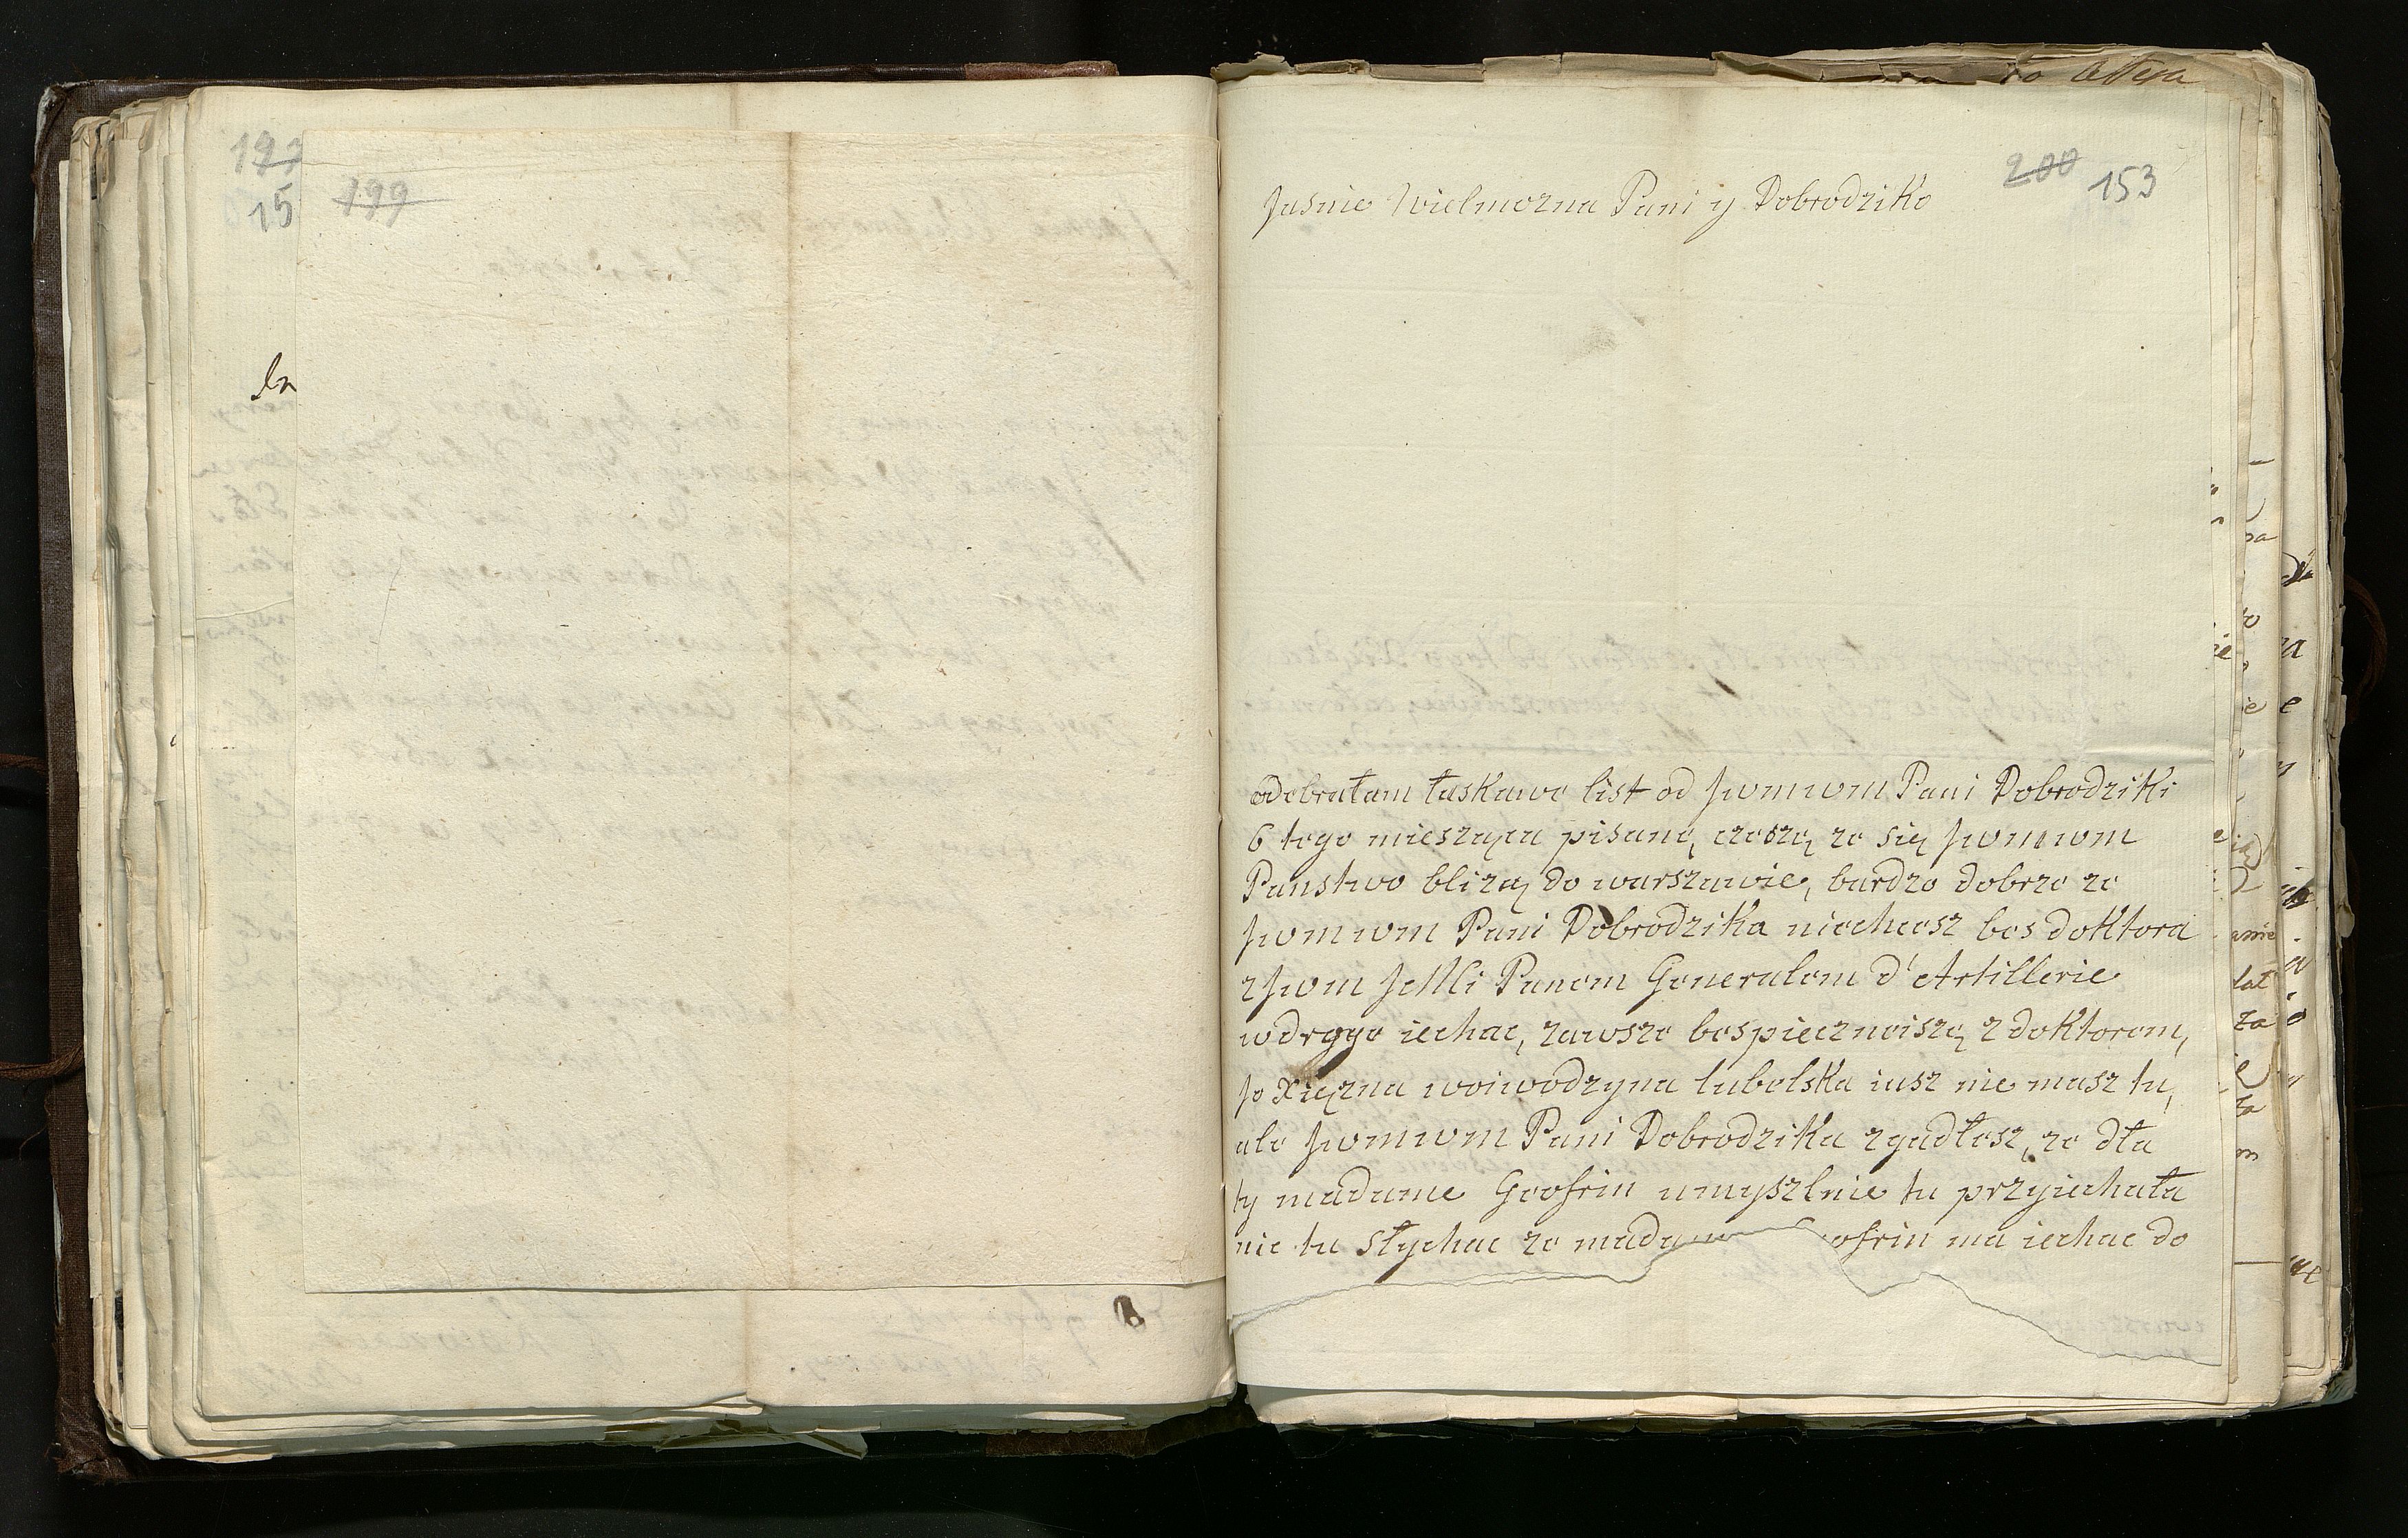 199
15
199
200 153
Jasnie Wielmozna Pani y Dobrodziko
odebrałam łaskawe list od Jwmwm Pani Dobrodziki
6 tego miesząca pisanę, czeszę ze się Jwmwm
Panstwo bliząy do warszawie, bardzo dobrze ze
Jwmwm Pani Dobrodzika niechcesz bes doktora
z Jwm JeMci Panem Generalem d'Artillerie
wdrogo iechac, zawsze bespiecznoiszę z doktorem,
Jo Xięzna woiwodzyna lubelska iusz nie masz tu,
ale Jwmwm Pani Dobrodzika zgadłesz, ze dła
ty madame Geofrin umyszlnie tu przyiechała
nie tu słychac ze madame eofrin ma iechac do